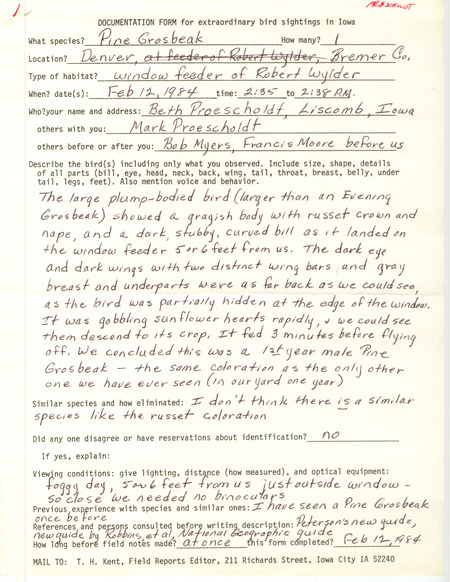 1
PROESCHOLDT
DOCUMENTATION FORM for extraordinary bird sightings in Iowa
What species? Pine Grosbeak How many? 1
Location? Denver, at feeder of Robert Wylder, Bremer Co.
Type of habitat? window feeder of Robert Wylder
When? date(s): Feb 12, 1984 time: 2:35 to 2:38 P.M.
Who?your name and address: Beth Proescholdt, Liscomb, Iowa
others with you: Mark Proescholdt
others before or after you: Bob Myers, Francis Moore before us
Describe the bird(s) including only what you observed. Include size, shape, details
of all parts (bill, eye, head, neck, back, wing, tail, throat, breast, belly, under
tail, legs, feet). Also mention voice and behavior.
The large plump-bodied bird (larger than an Evening
Grosbeak) showed a grayish body with russet crown and
nape, and a dark, stubby, curved bill as it landed on
the window feeder 5 or 6 feet from us. The dark eye
and dark wings with two distinct wing bars and gray
breast and underparts were as far back as we could see,
as the bird was partially hidden at the edge of the window.
It was gobbling sunflower hearts rapidly, & we could see
them descend to its crop. It fed 3 minutes before flying
off. We concluded this was a 1st year male Pine
Grosbeak — the same coloration as the only other
one we have ever seen (in our yard one year)
Similar species and how eliminated: I don't think there is a similar
species like the russet coloration
Did any one disagree or have reservations about identification? no
If yes, explain:
Viewing conditions: give lighting, distance (how measured), and optical equipment:
foggy day, 5 or 6 feet from us just outside window -
so close we needed no binoculars
Previous experience with species and similar ones: I have seen a Pine Grosbeak
once before
References and persons consulted before writing description: Peterson's new guide,
new guide by Robbins, et al, National Geographic guide
How long before field notes made? at once this form completed? Feb 12, 1984
MAIL TO: T. H. Kent, Field Reports Editor, 211 Richards Street, Iowa City IA 52240